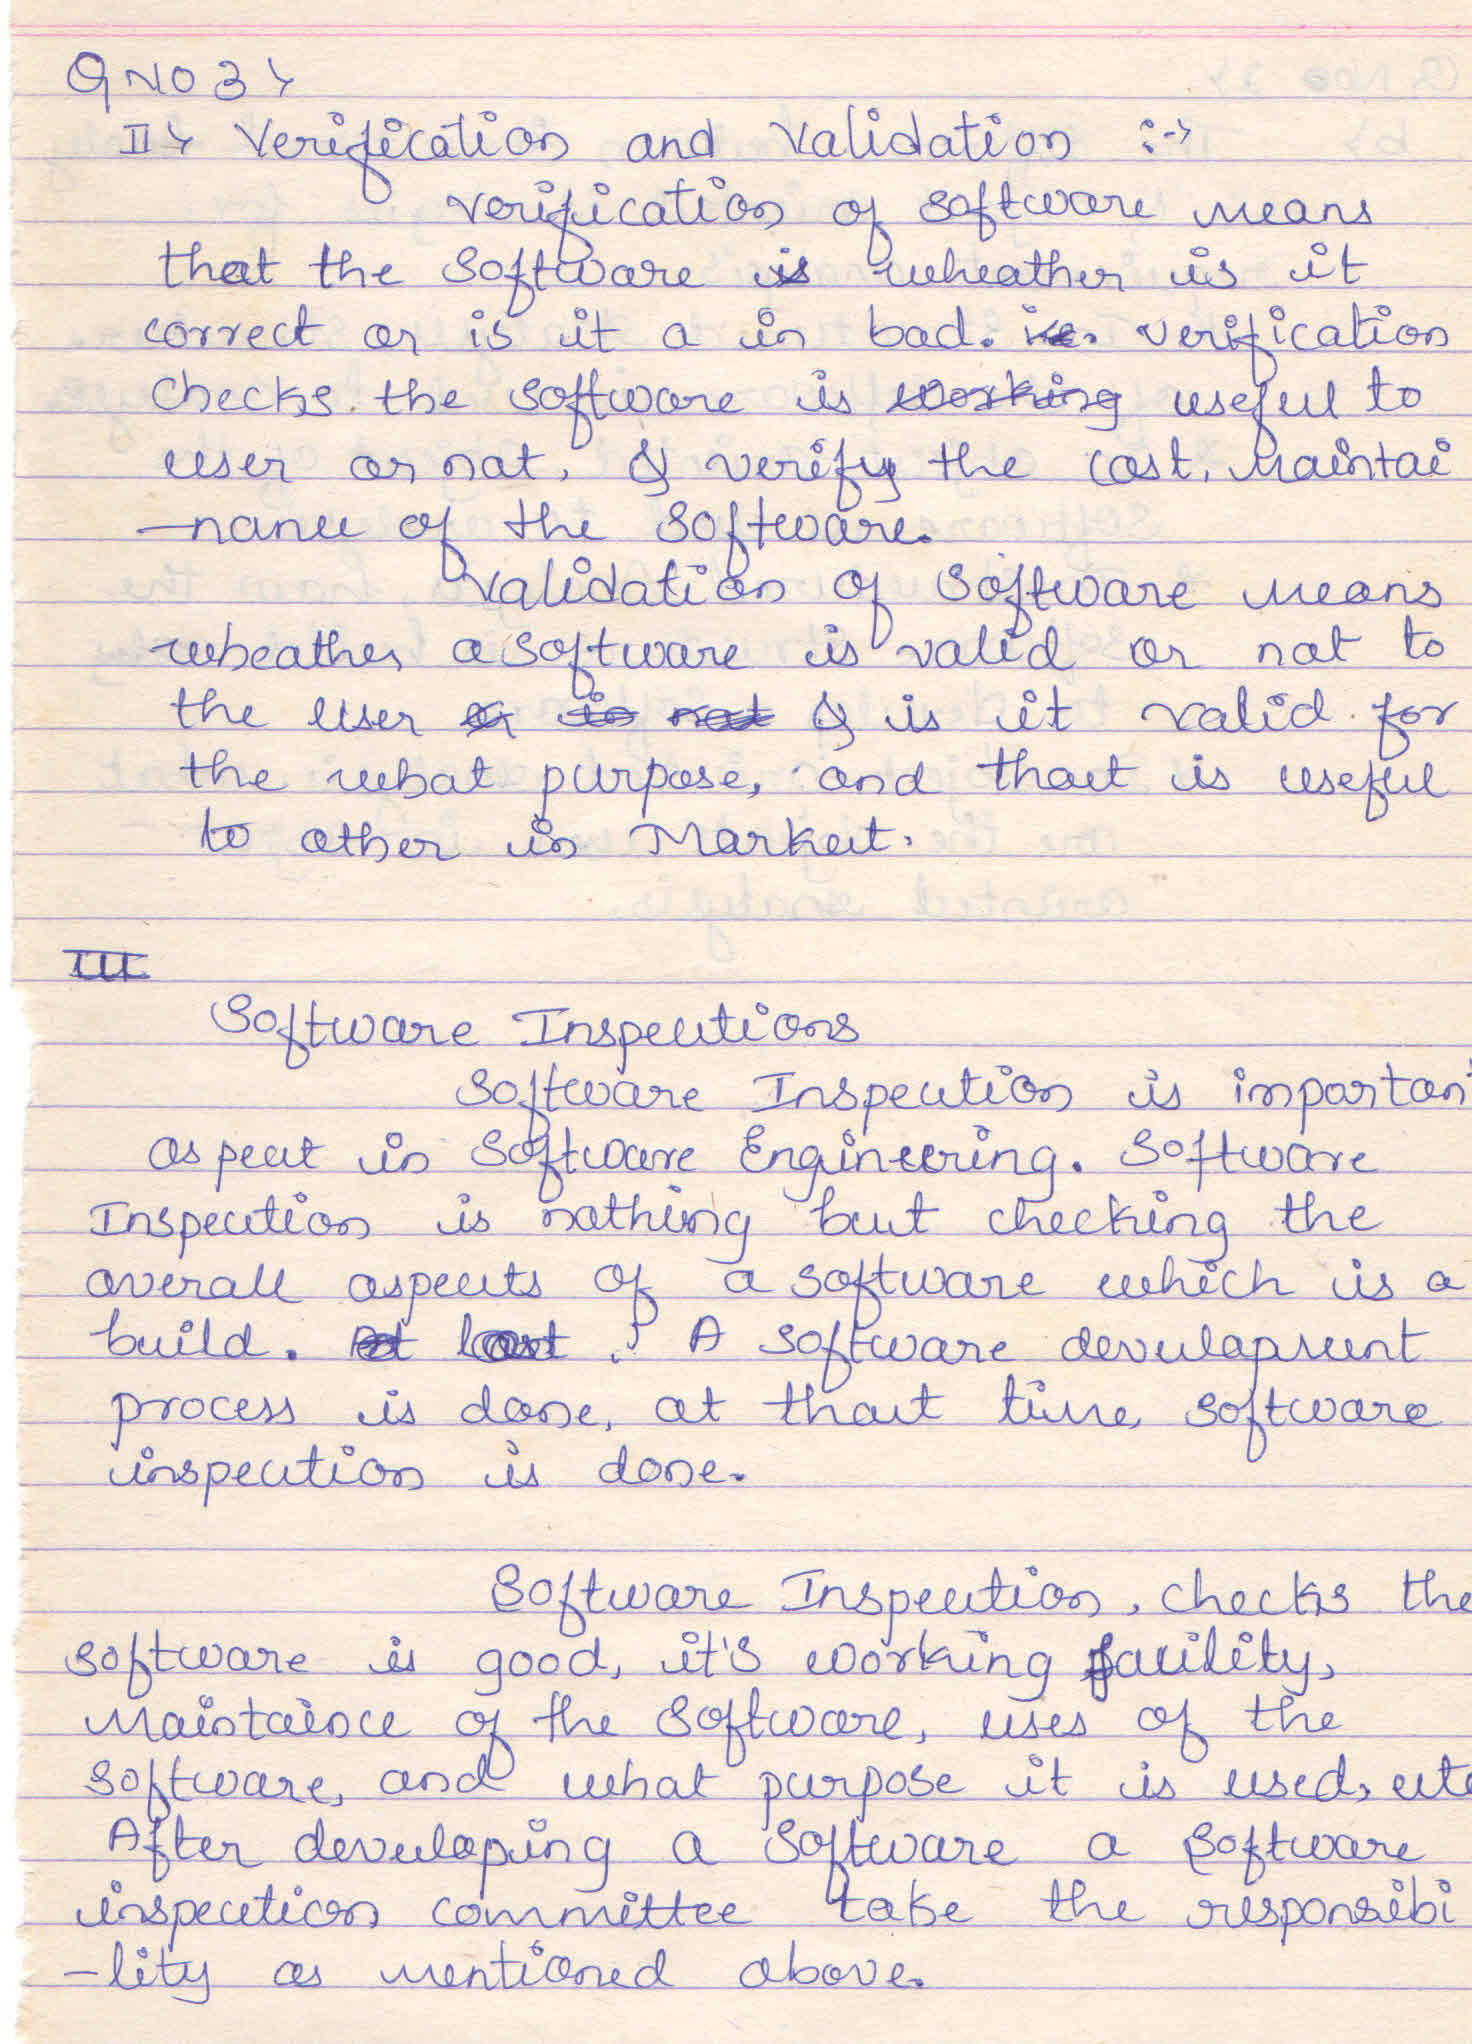 Q NO 3 >
II > Verification and Validation :->
Verification of software means
that the software is wheather is it
correct or is it a in bad. i.e. verification
checks the software is working useful to
user or not, & verify the cost, maintai
-nance of the software.
Validation of software means
wheather a software is valid or not to
the user or is not & is it valid for
the what purpose, and that is useful
to other in Market.
III
Software Inspections
Software Inspection is important
aspect in Software Engineering. Software
Inspection is nothing but checking the
overall aspects of a software which is a
build. At last . A software development
process is done, at that time software
inspection is done.
Software Inspection, checks the
software is good, it's working facility,
maintaince of the software, uses of the
software, and what purpose it is used, etc
After developing a software a software
inspection committee take the responsibi
-lity as mentioned above.